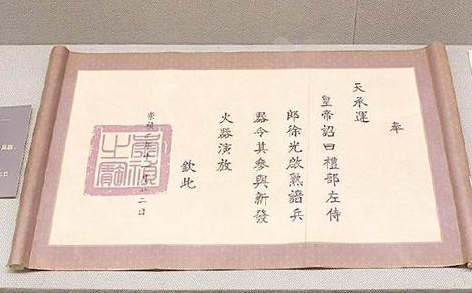 奉
天承運
皇帝詔曰禮部左侍
郎徐光啟熟諳兵
器令其參與新發
火器演放
欽此
崇禎二年十月廿二日
崇禎之寶